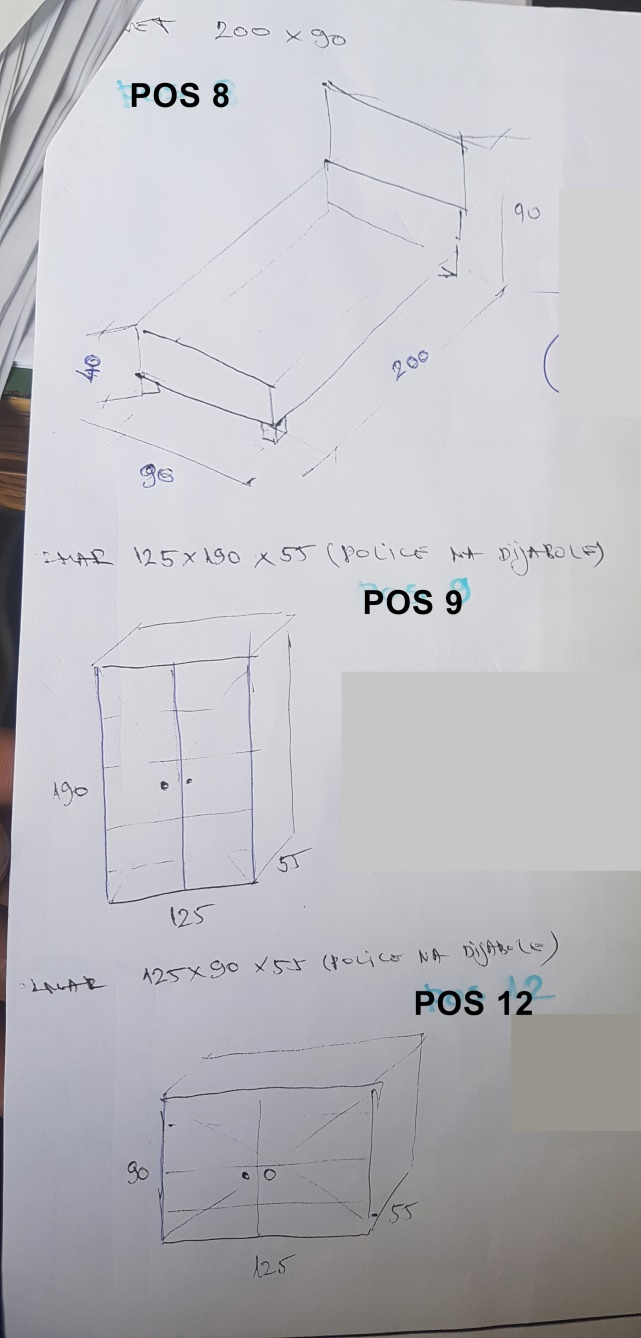 200 x 90
POS 8
90
200
40
90
125 x 190 x 55 (POLICE NA DIJABOLE)
POS 9
190
55
125
125 x 90 x 55 (POLICE NA DIJABOLE)
POS 12
90
55
125